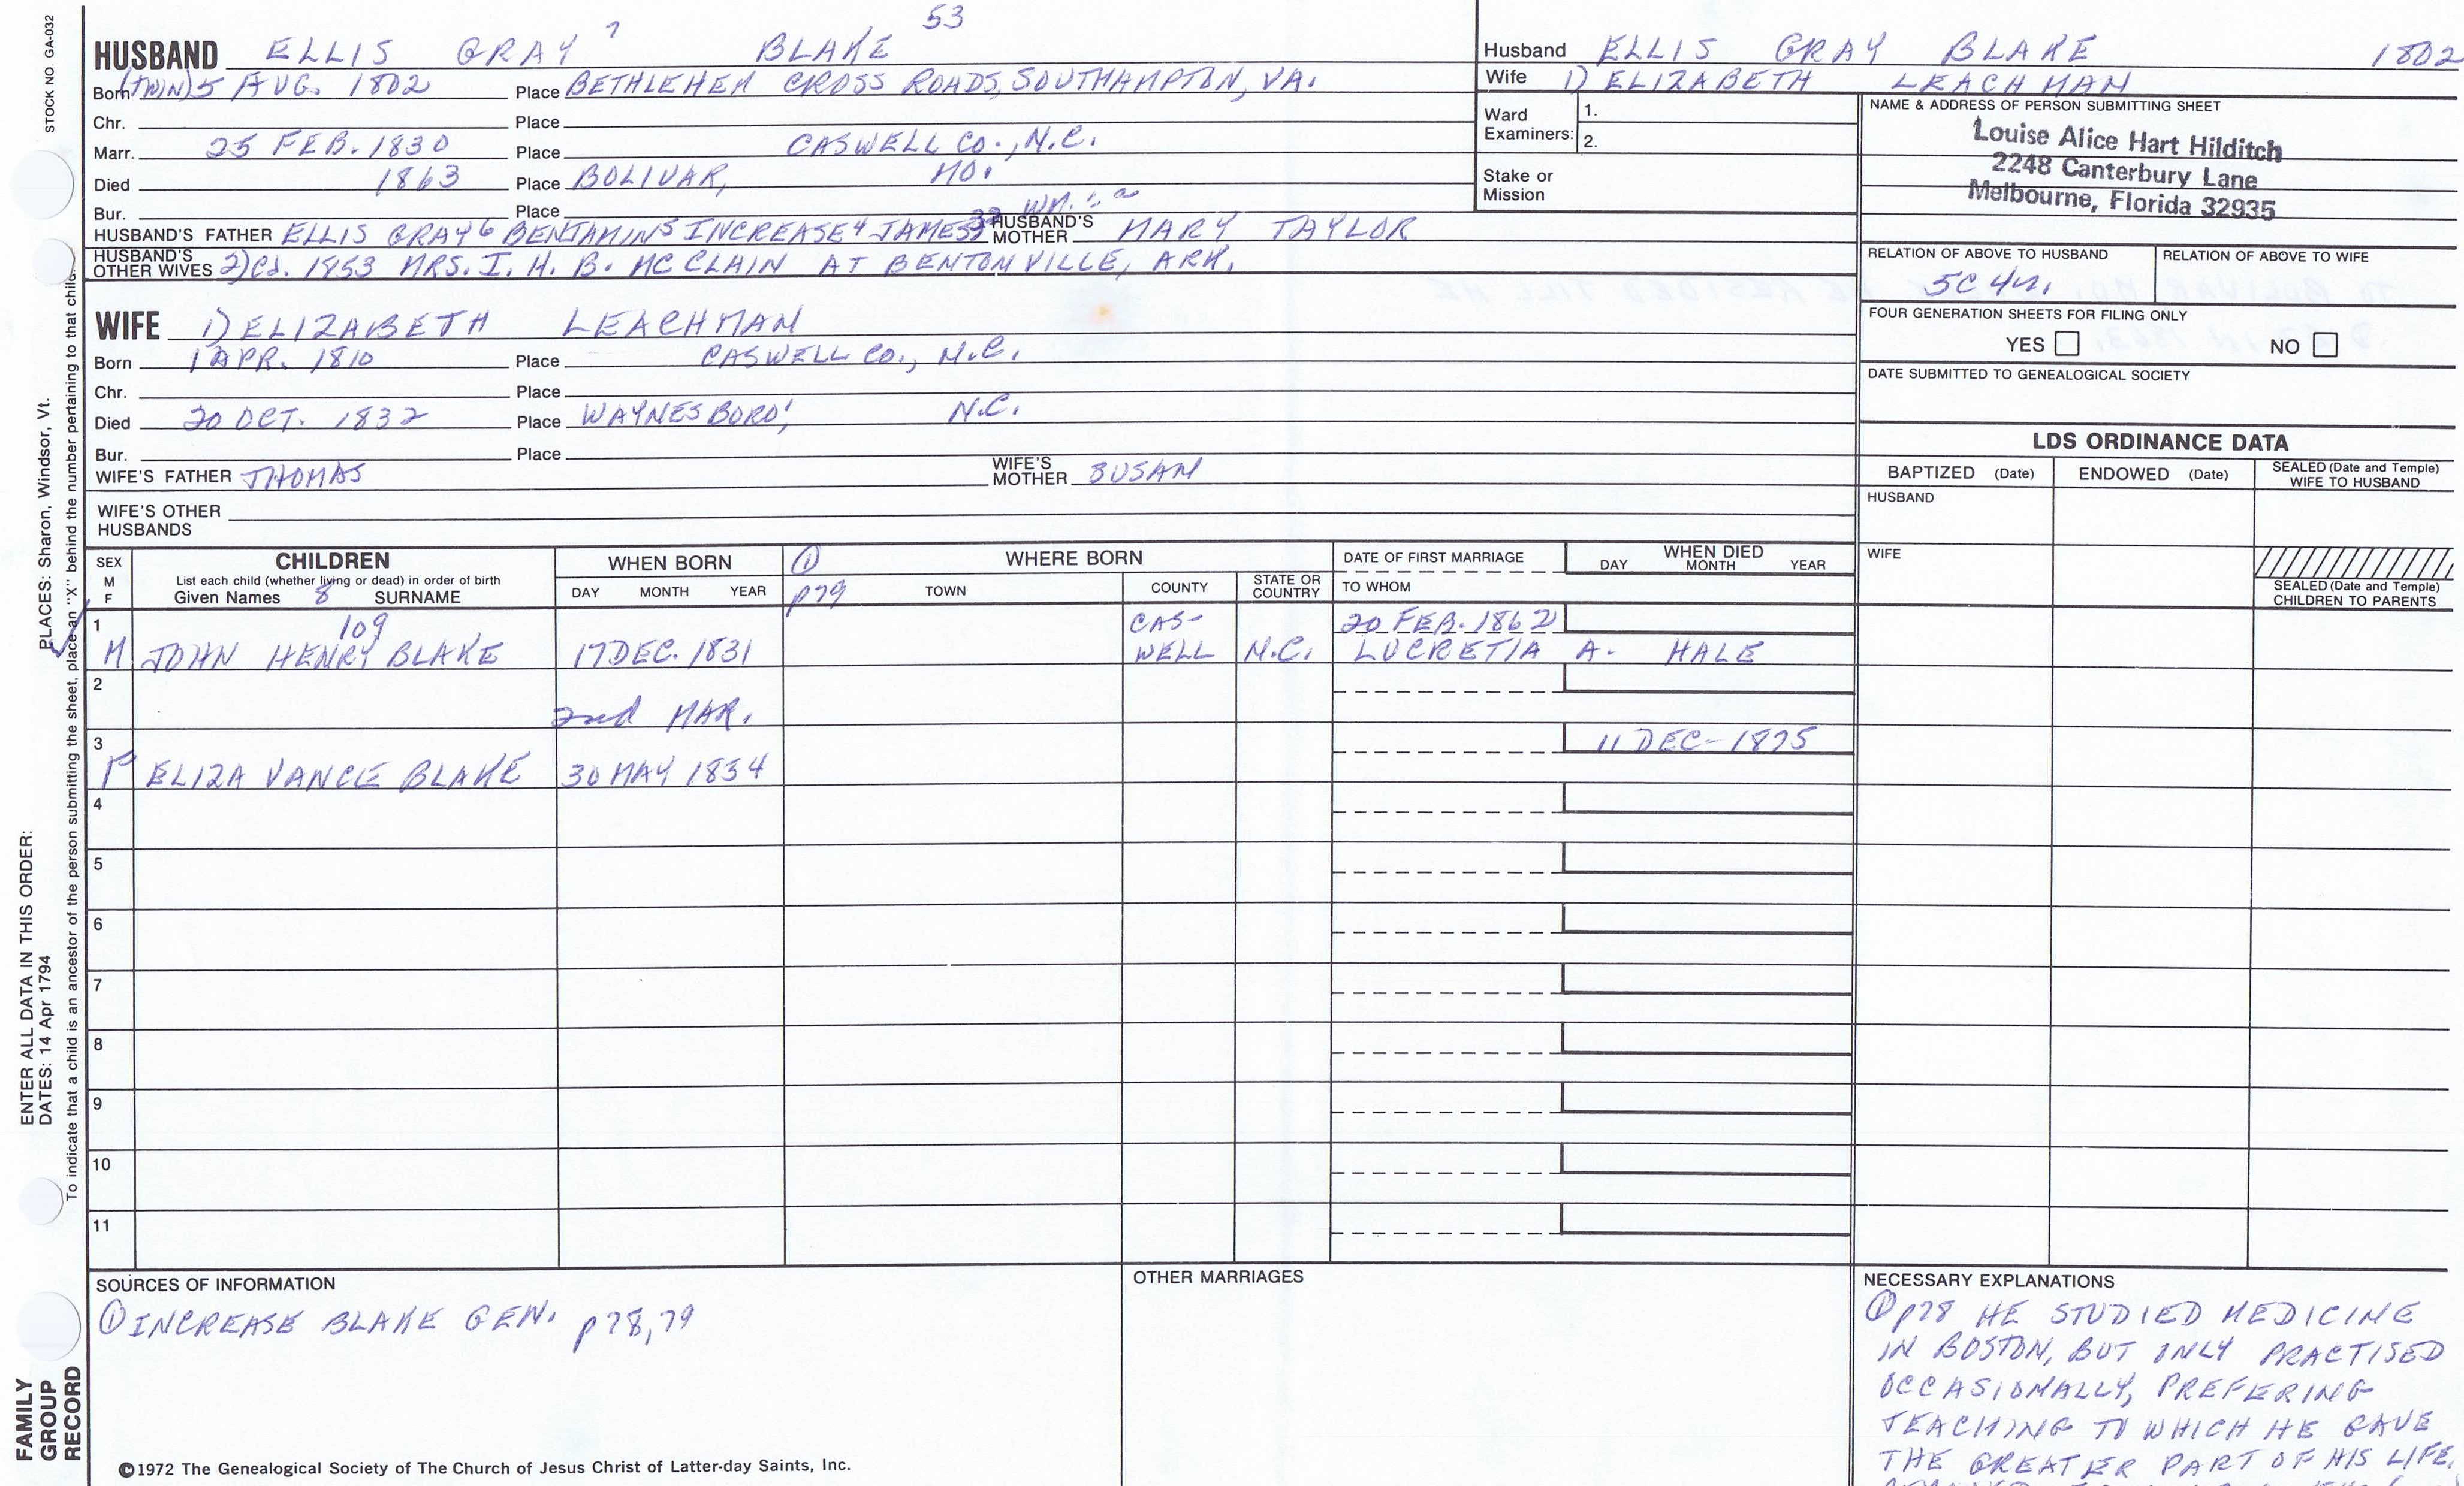 STOCK NO GA-032
53
HUSBAND ELLIS GRAY 7 BLAKE
Born (TWIN) 5 AUG. 1802 Place BETHLEHEM CROSS ROADS, SOUTHAMPTON, VA.
Chr. Place
Marr. 25 FEB. 1830 Place CASWELL CO., N.C.
Died 1863 Place BOLIVAR, MO.
Bur. Place
HUSBAND'S FATHER ELLIS GRAY6 BENJAMIN5 INCREASE4 JAMES3 HUSBAND'S MOTHER MARY TAYLOR
HUSBAND'S OTHER WIVES 2) Cd. 1853 MRS. I. H. B. MC CLAIN AT BENTONVILLE, ARK.
Husband ELLIS GRAY BLAKE 1802
Wife 1) ELIZABETH LEACHMAN
Ward Examiners: 1.
2.
Stake or Mission
NAME & ADDRESS OF PERSON SUBMITTING SHEET
Louise Alice Hart Hilditch
2248 Canterbury Lane
Melbourne, Florida 32935
RELATION OF ABOVE TO HUSBAND RELATION OF ABOVE TO WIFE
5C 4r.
FOUR GENERATION SHEETS FOR FILING ONLY
YES NO
DATE SUBMITTED TO GENEALOGICAL SOCIETY
WIFE 1) ELIZABETH LEACHMAN
Born 1 APR. 1810 Place CASWELL CO., N.C.
Chr. Place
Died 20 OCT. 1832 Place WAYNESBORO', N.C.
Bur. Place
WIFE'S FATHER THOMAS WIFE'S MOTHER SUSAN
WIFE'S OTHER HUSBANDS
LDS ORDINANCE DATA
BAPTIZED (Date) ENDOWED (Date) SEALED (Date and Temple) WIFE TO HUSBAND
HUSBAND
WIFE
SEALED (Date and Temple) CHILDREN TO PARENTS
SEX M F
CHILDREN
List each child (whether living or dead) in order of birth
Given Names 8 SURNAME
WHEN BORN
DAY MONTH YEAR
① p79
WHERE BORN
TOWN COUNTY STATE OR COUNTRY
DATE OF FIRST MARRIAGE
TO WHOM
WHEN DIED
DAY MONTH YEAR
1 109 CAS- 20 FEB. 1862
M JOHN HENRY BLAKE 17 DEC. 1831 WELL N.C. LUCRETIA A. HALE
2
2nd MAR.
3 11 DEC- 1875
F ELIZA VANCE BLAKE 30 MAY 1834
4
5
6
7
8
9
10
11
SOURCES OF INFORMATION
① INCREASE BLAKE GEN. p78,79
OTHER MARRIAGES
NECESSARY EXPLANATIONS
① p78 HE STUDIED MEDICINE
IN BOSTON, BUT ONLY PRACTISED
OCCASIONALLY, PREFERING
TEACHING TO WHICH HE GAVE
THE GREATER PART OF HIS LIFE.
©1972 The Genealogical Society of The Church of Jesus Christ of Latter-day Saints, Inc.
FAMILY GROUP RECORD
ENTER ALL DATA IN THIS ORDER:
DATES: 14 Apr 1794
PLACES: Sharon, Windsor, Vt.
To indicate that a child is an ancestor of the person submitting the sheet, place an "X" behind the number pertaining to that child.